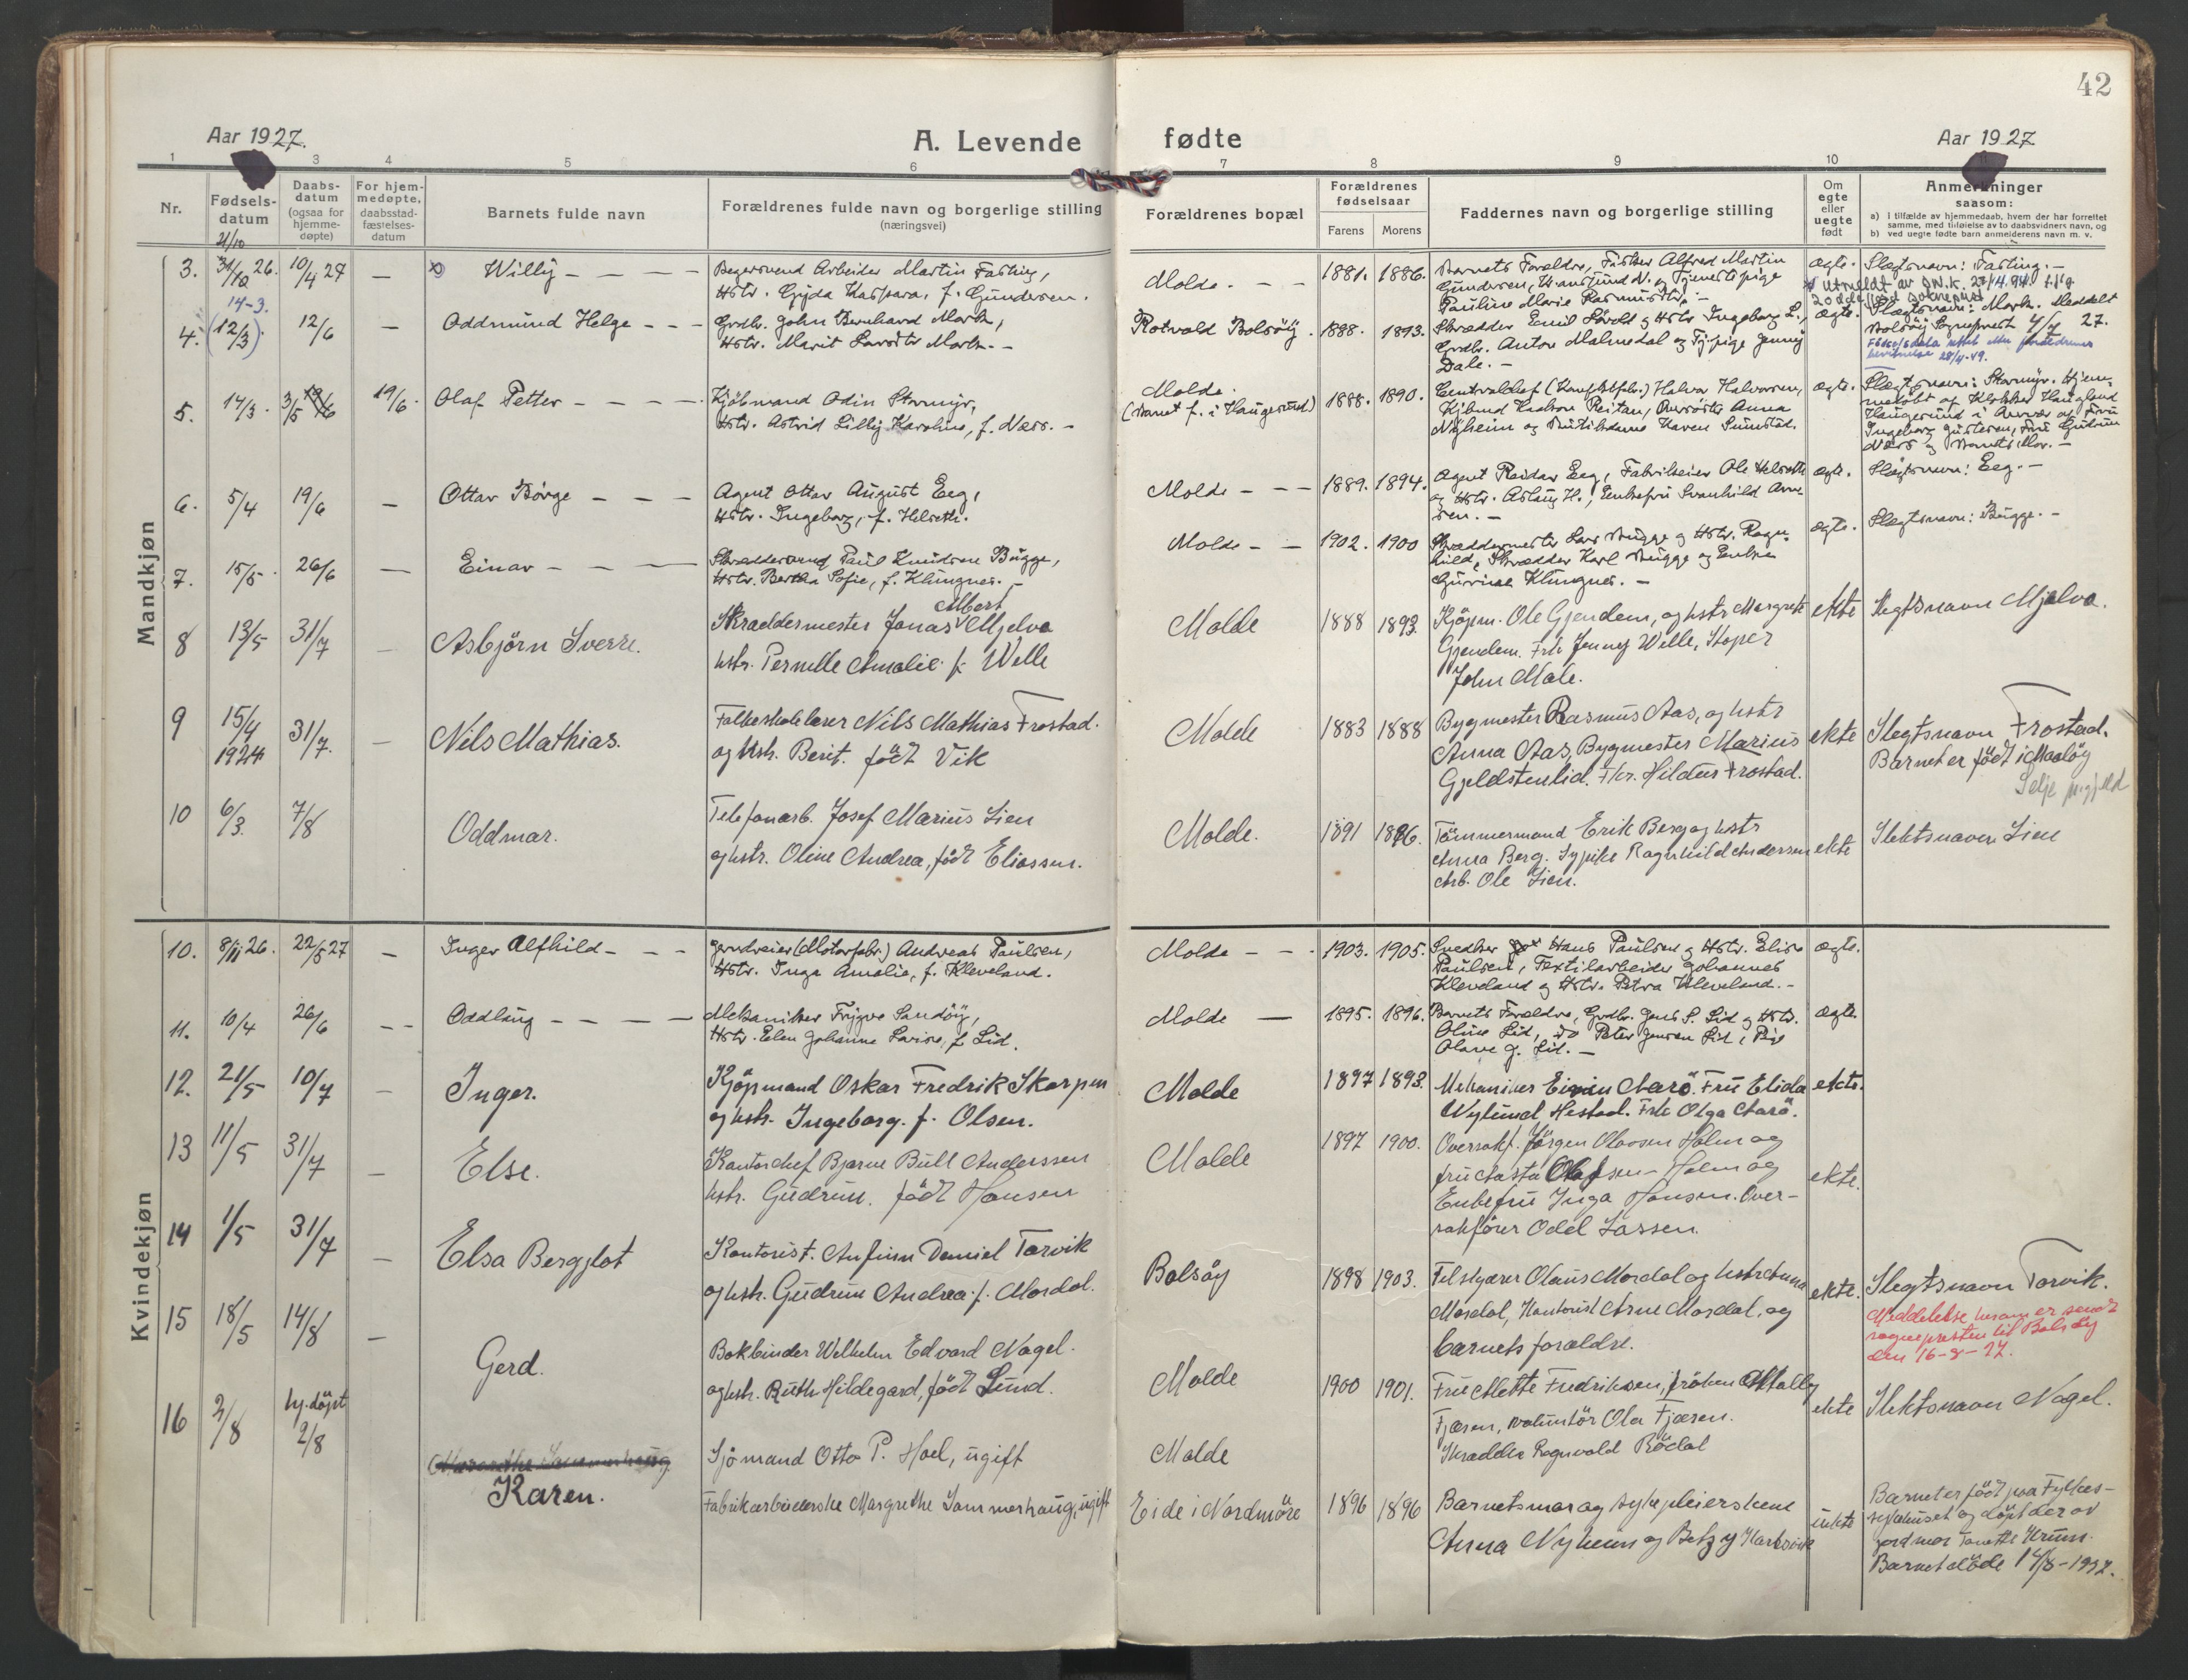 42
Aar 1927.
A. Levende fødte
Aar 1927
1 3 4 5 6 7 8 9 10
Nr.
Fødsels-
datum
Daabs-
datum
(ogsaa for
hjemme-
døpte)
For hjem-
medøpte,
daabsstad-
fæstelses-
datum
Barnets fulde navn
Forældrenes fulde navn og borgerlige stilling
(næringsvei)
Forældrenes bopæl
Forældrenes
fødselsaar
Farens Morens
Faddernes navn og borgerlige stilling
Om
egte
eller
uegte
født
Anmerkninger
saasom:
a) i tilfælde av hjemmedaab, hvem der har forrettet
samme, med tilføielse av to daabsvidners navn, og
b) ved uegte fødte barn anmelderens navn m. v.
Mandkjøn
21/10
3. 31/10 26. 10/4 27 — Willy — — — —
Martin Fasting,
Hstr. Gyda Kaspara, f. Gundersen.
Molde. — — 1881. 1886.
Barnets Forældre, Fisker Alfred Martin
Gundersen, Tjenestepige
Pauline Marie
ægte. Slægtsnavn: Fasting. —
14-3.
4. (12/3). 12/6 — Oddmund Helge — — —
Grdbr. John Bernhard Mork,
Hstr. Marit Mork. —
Bolsöy. 1888. 1893.
Skrædder Emil og Hstr Ingeborg L.,
Grdbr. Anton Malmedal og Tj.pige Jenny
Dale. —
ægte. Slægtsnavn: Mork. Meddelt
Bolsöy Sogneprest 4/7 27.
Fødselsdata rettet efter forældrenes
28/4-49.
5. 14/3. 3/5 19/6 19/6. Olaf Petter — — — —
Kjöbmand Odin Stormyr,
Hstr. Astrid Lilly Karoline, f. Næss. —
Molde.
(Barnet f. i Haugesund) 1888. 1890.
Halvor Halvorsen,
Kjbmd Haakon Reiten, Anna
Nyheim og Karen Sundstad.
ægte. Slægtsnavn: Stormyr. Hjem-
medöbt af Klokker Haugland
Haugesund i Nærvær af Fru
Ingeborg Fru Gudrun
Næss og Barnets Mor. —
6. 5/4 19/6 — Ottar Börge — — —
Agent Ottar August Eeg,
Hstr. Ingeborg, f. Helseth.
Molde — — — 1889. 1894.
Agent Reidar Eeg, Fabrikeier Ole Helseth
og Hstr. Aslaug H., Enkefru Svanhild Arne-
sen. —
ægte. Slægtsnavn: Eeg. —
7. 15/5. 26/6 — Einar — — — —
Skræddersvend Paul Knudsen Bugge,
Hstr. Bertha Sofie, f. Klungnes. —
Molde — — 1902. 1900
Skræddermester Lars Bugge og Hstr. Ragn-
hild, Skrædder Karl Bugge og Enken
Gurine Klungnes. —
ægte. Slægtsnavn: Bugge. —
8 13/5 31/7 — Asbjörn Sverre.
Albert
Skraeddermester Jonas Mjelva
hstr. Pernille Amalie f. Welle
Molde 1888 1893.
Kjöpm. Ole Gjendem, og hstr Margrete
Gjendem. Frk Jenny Welle, Stoper
John Male.
ekte Slegtsnavn Mjelva.
9 15/4 1924 31/7. — Nils Mathias.
Folkeskolelærer Nils Mathias Frostad.
og hstr. Berit. födt Vik
Molde 1883 1888
Bygmester Rasmus Aas, og hstr
Anna Aas, Bygmester Marius
Gjeldstenlid. Frk. Hildur Frostad.
ekte Slegtsnavn Frostad.
Barnet er födt i Maalöy
Selje pr.gjeld
10 6/3. 7/8 Oddmar.
Telefonarb. Josef Marius Lien
og hstr. Oline Andrea, födt Eliassen.
Molde. 1891 1896.
Tömmermand Erik Berg og hstr
Anna Berg. Sypike Ragnhild Andersen
Arb. Ole Lien.
ekte Slektsnavn Lien
Kvindekjøn
10. 8/11 26. 22/5 27 — Inger Alfhild — — —
(Motorfabr.) Andreas Paulsen,
Hstr. Inga Amalie, f. Kleveland.
Molde — — 1903. 1905.
Snedker Hans Paulsen og Hstr. Elise
Paulsen, Textilarbeider Johannes
Kleveland og Hstr. Petra Kleveland. —
ægte.
11. 10/4 26/6 — — Oddlaug — — — —
Mekaniker Trygve Sandöy,
Hstr. Elen Johanne Lovise, f. Lid.
Molde — 1895. 1896.
Barnets Forældre, Grdbr. Jens S. Lid og Hstr.
Oline Lid, do Peter Jensen Lid, Pige
Olave J. Lid. —
ægte.
12. 21/5 10/7 — Inger.
Kjöpmand Oskar Fredrik Skarpen
og hstr. Ingeborg. f. Olsen.
Molde 1897 1893.
Mekaniker Aarö. Fru Elida
Nylund Hestad. Frk Olga Aarö.
ekte.
13 11/5 31/7 — Else.
Kontorchef Bjarne Bull Anderssen
hstr. Gudrun. födt Hansen
Molde 1897 1900.
Overrakf. Jörgen Olafsen Holm og
fru Aasta Olafsen-Holm og
Enkefru Inga Hansen. Over-
rakförer Odd Lassen.
ekte.
14 1/5 31/7 — Elsa Bergljot
Kontorist. Anfinn Daniel Torvik
og hstr. Gudrun Andrea f. Mordal.
Bolsöy 1898 1903.
Filskjærer Olaus Mordal og hstr Anna
Mordal, Kontorist Arne Mordal. og
barnets forældre.
ekte. Slegtsnavn Torvik.
Meddelelse herom er sendt
sognepresten til Bolsöy
den 16-8-27.
15 18/5 14/8 — Gerd.
Bokbinder Wilhelm Edvard Nagel.
og hstr. Ruth Hildegard, födt Lund.
Molde 1900 1901.
Fru Mette Fredriksen, fröken Mally
Fjæsen, voluntör Ola Fjæsen.
Skrædder Ragnvald Rödal
ekte Slektsnavn Nagel.
16 2/8 hj.döpt 2/8
Karen.
Sjömand Otto P. Hoel, ugift
Fabrikarbeiderske Margrethe Sammerhaug, ugift
Molde
Eide i Nordmöre 1896 1896
Barnets mor og sykepleierskene
Anna Nyheim og Betzy
uekte Barnet er födt paa Fylkes-
sykehuset og döpt der av
jordmor
Barnet döde 14/8-1927.